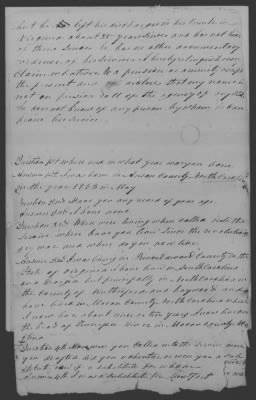 but he left his discharge in his trunk in
Virginia about 35 years since and has not heard
of them since he has no other documentary
evidence of his service I hereby relinquish every
claim whatever to a pension or annuity except
the present and declare that my name is
not on pension roll of the agency of any State
he does not know of any person by whom he can
prove his service
Question 1st where and in what year were you born
Answer 1st I was born in County North Carolina
in the year 1763 in May
Question 2nd Have you any record of your age
Answer 2nd I have none
Question 3rd Where were you living when called into the
service where have you lived since the revolution
ary war and where do you now live
Answer 3rd I was living in County in the
State of Virginia I have lived in South Carolina
and Georgia but principally in North Carolina in
the County of Rutherford and Haywood and
have lived in Macon County North Carolina where
I now live about nine or ten years I now live on
the head of Tennessee river in Macon County N C
Question 4th How were you called into the service were
you drafted did you volunteer or were you a sub
stitute and if a substitute for whom
Answer 4th I was a substitute for